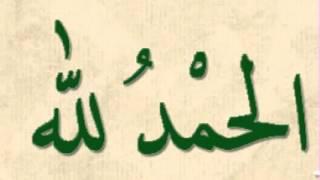 الحمْدُ للّٰه